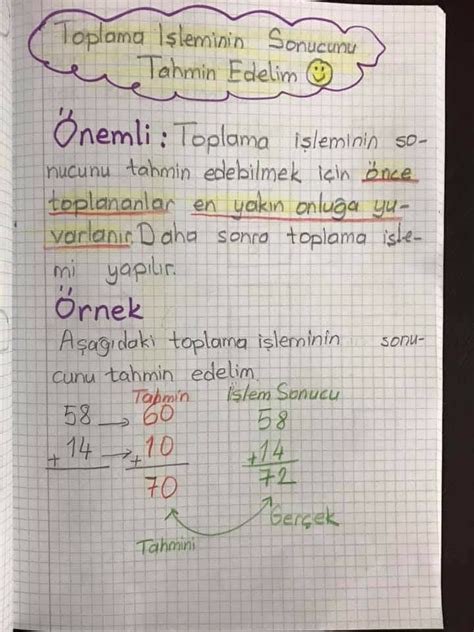 Toplama İşleminin Sonucunu
Tahmin Edelim
Önemli: Toplama işleminin so-
nucunu tahmin edebilmek için önce
toplananlar en yakın onluğa yu-
varlanır. Daha sonra toplama işle-
mi yapılır.
Örnek
Aşağıdaki toplama işleminin sonu-
cunu tahmin edelim.
Tahmin İşlem Sonucu
58 → 60 58
+ 14 → + 10 + 14
70 72
Tahmini Gerçek